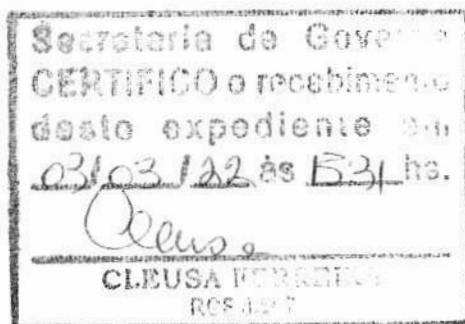 Secretaria de Governo
CERTIFICO o recebimento
deste expediente em
03/03/22 às 15:31 hs.
Cleusa
CLEUSA